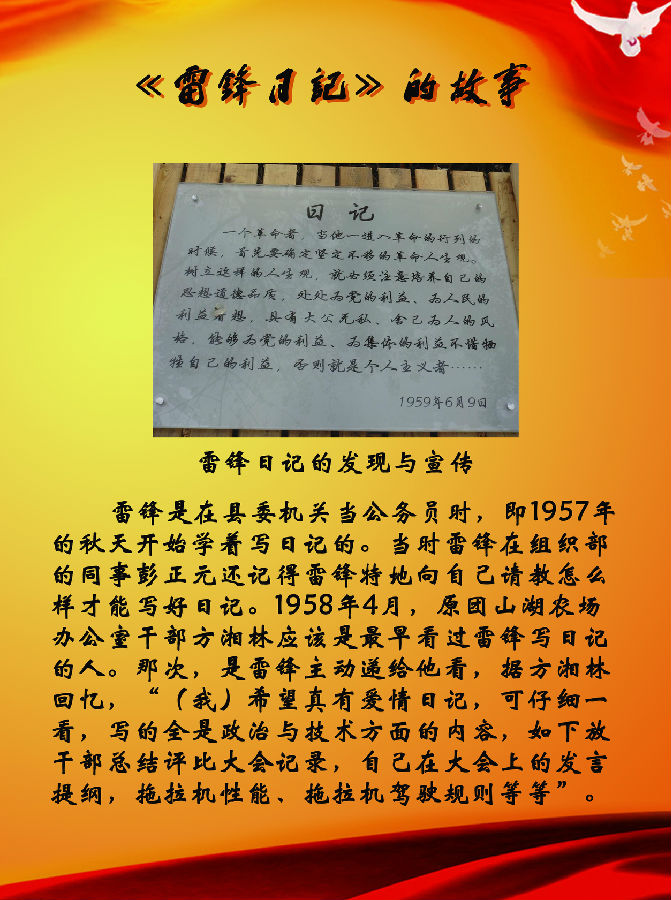 《雷锋日記》的故事
日记
一个革命者，当他一进入革命的行列的
时候，首先要确定坚定不移的革命人生观。
树立这样的人生观，就必须注意培养自己的
思想道德品质，处处为党的利益、为人民的
利益着想，具有大公无私、舍己为人的风
格，能够为党的利益、为集体的利益不惜牺
牲自己的利益，否则就是个人主义者……
1959年6月9日
雷锋日记的发现与宣传
雷锋是在县委机关当公务员时，即1957年
的秋天开始学着写日记的。当时雷锋在组织部
的同事彭正元还记得雷锋特地向自己请教怎么
样才能写好日记。1958年4月，原团山湖农场
办公室干部方湘林应该是最早看过雷锋写日记
的人。那次，是雷锋主动递给他看，据方湘林
回忆，“（我）希望真有爱情日记，可仔细一
看，写的全是政治与技术方面的内容，如下放
干部总结评比大会记录，自己在大会上的发言
提纲，拖拉机性能、拖拉机驾驶规则等等”。